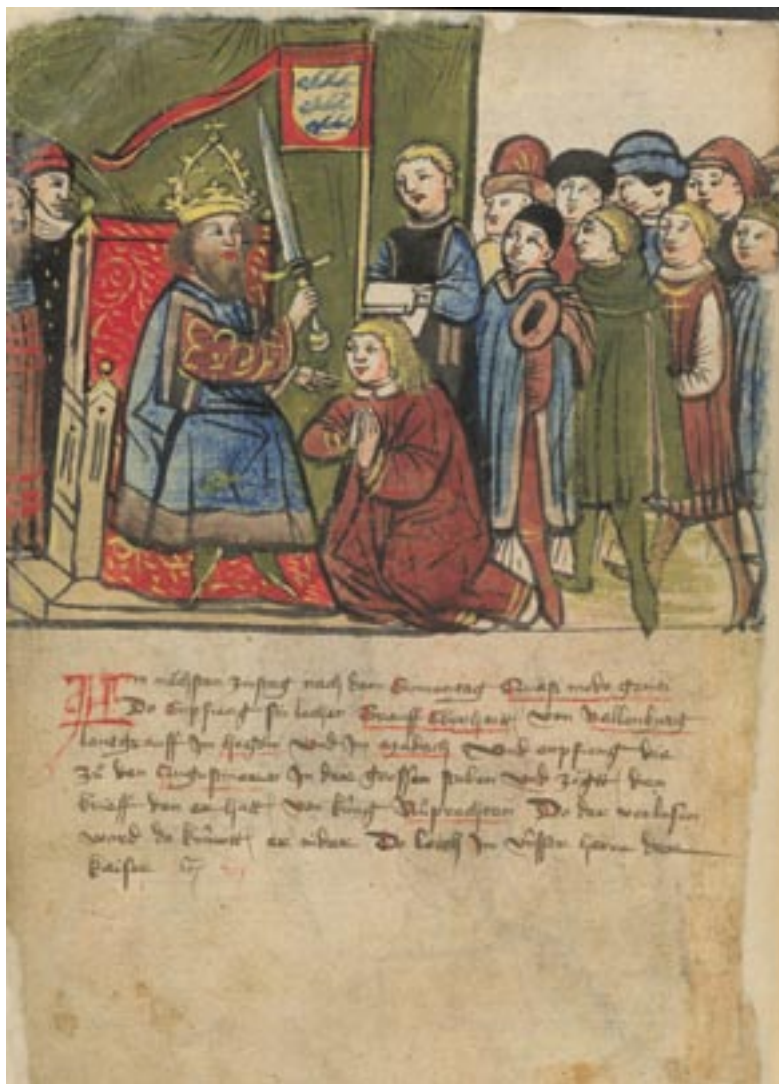 Am nächsten zinstag nach dem Sunnentag Quasi modo geniti
Do Enpfieng sin lechen Grauff Eberhart von Nellenburg
lantgrauff Im Hegow vnd Im madach vnd enpfieng die
zů den Augustineren In der grossen stuben vnd zögt den
brieff den er hatt von küng Růprechten Do der verlesen
ward do knüwet er nider Do lech Im vnsser herre der
kaiser